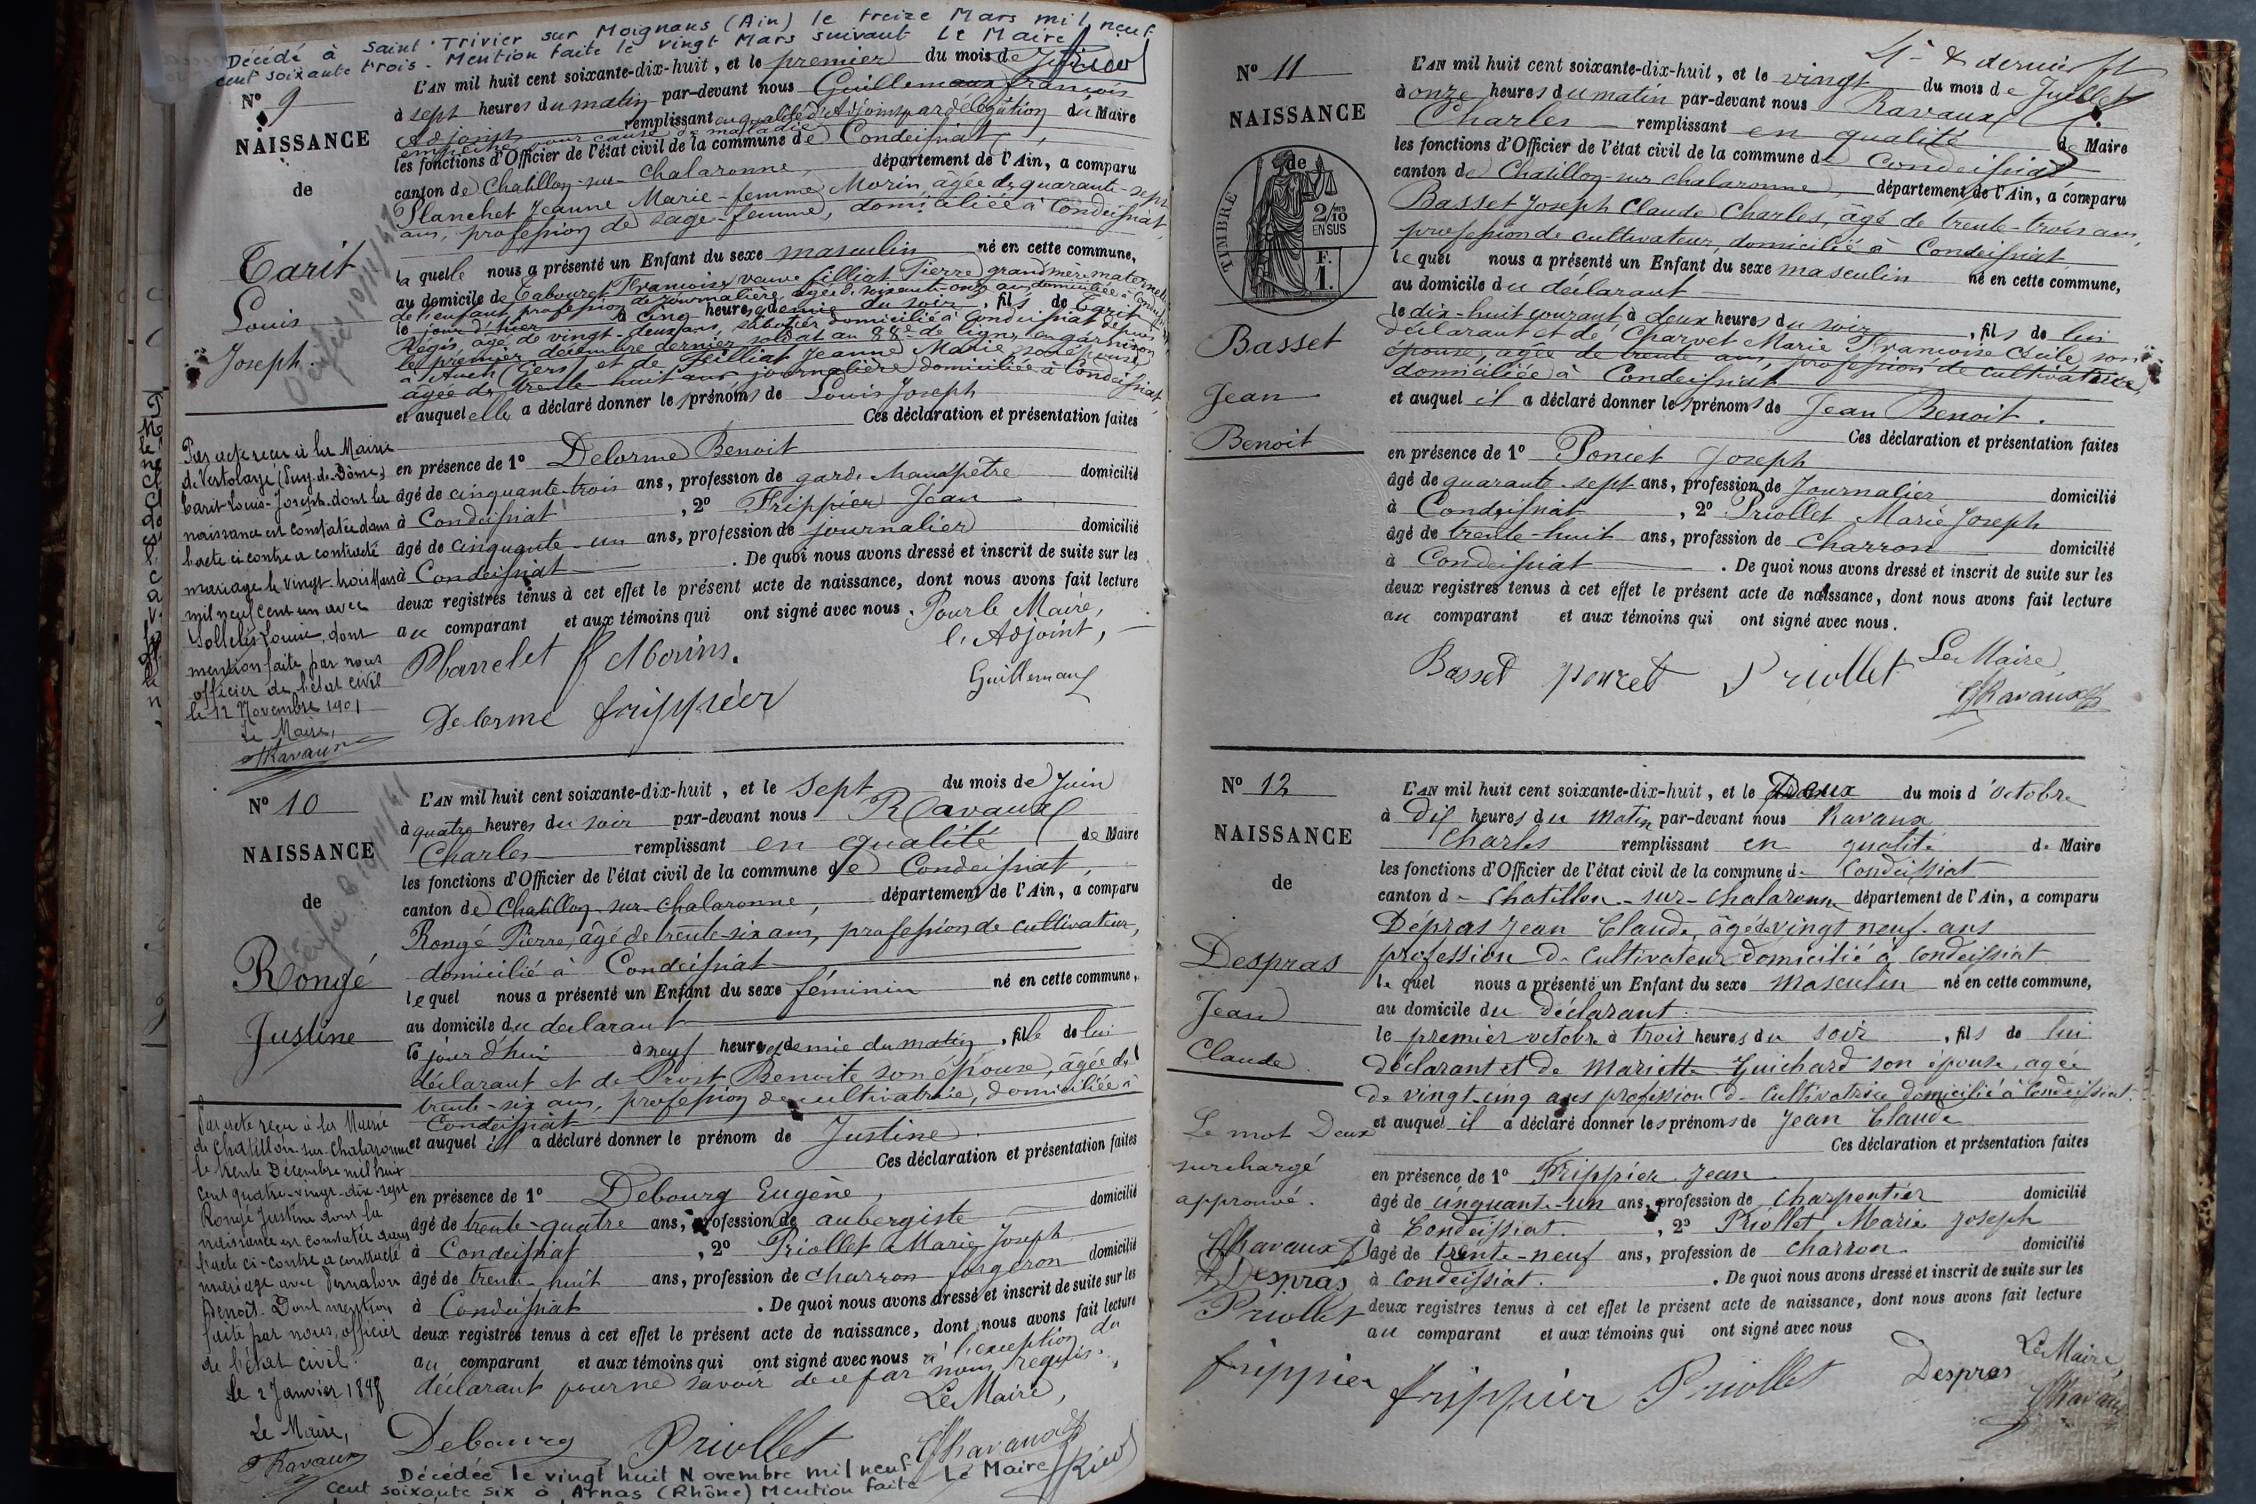 Décédé à Saint-Trivier sur Moignans (Ain) le treize Mars mil neuf
cent soixante trois - Mention faite le vingt Mars suivant Le Maire
Nº 9
NAISSANCE
de
Tarit
Louis
Joseph.
L'AN mil huit cent soixante-dix-huit, et le premier du mois de
à sept heures du matin par-devant nous Guillemaux françois
Adjoint remplissant en qualité d'Adjoint par délégation du Maire
empêché pour cause de maladie
les fonctions d'Officier de l'état civil de la commune de Condeissiat,
canton de Chatillon-sur-Chalaronne, département de l'Ain, a comparu
Planchet Jeanne Marie-femme Morin, âgée de quarante-sept
ans, profession de sage-femme, domiciliée à Condeissiat,
la quelle nous a présenté un Enfant du sexe masculin né en cette commune,
au domicile de Tabouret Françoise veuve Filliat Pierre grand mère maternelle
de l'enfant, profession de journalière, âgée de soixante-onze ans, domiciliée à
le jour d'hier à cinq heures demie du soir, fils de Tarit
Régis, âgé de vingt-deux ans, sabotier domicilié à Condeissiat depuis
le premier décembre dernier soldat au 88e de ligne en garnison
à Auch (Gers) et de Filliat Jeanne Marie son épouse
âgée de trente huit ans journalière domiciliée à Condeissiat,
et auquel elle a déclaré donner les prénoms de Louis Joseph
Ces déclaration et présentation faites
en présence de 1º Delorme Benoit
âgé de cinquante-trois ans, profession de garde champêtre domicilié
à Condeissiat, 2º Frippier Jean
âgé de cinquante-un ans, profession de journalier domicilié
à Condeissiat. De quoi nous avons dressé et inscrit de suite sur les
deux registres tenus à cet effet le présent acte de naissance, dont nous avons fait lecture
au comparant et aux témoins qui ont signé avec nous. Pour le Maire,
l'Adjoint,
Planchet f Morins.
Guillemaux
Delorme frippier
Par acte reçu à la Mairie
de Vertolaye (Puy-de-Dôme)
Tarit Louis-Joseph dont la
naissance est constatée dans
l'acte ci-contre a contracté
mariage le vingt-trois Mars
mil neuf cent un avec
Louise, dont
mention faite par nous
officier de l'état civil
le 12 Novembre 1901
Le Maire,
Ravaux
Nº 10
NAISSANCE
de
Rongé
Justine
L'AN mil huit cent soixante-dix-huit, et le sept du mois de Juin
à quatre heures du soir par-devant nous Ravaux
Charles remplissant en qualité de Maire
les fonctions d'Officier de l'état civil de la commune de Condeissiat,
canton de Chatillon-sur-Chalaronne, département de l'Ain, a comparu
Rongé Pierre, âgé de trente-six ans, profession de cultivateur,
domicilié à Condeissiat
lequel nous a présenté un Enfant du sexe féminin né en cette commune,
au domicile du déclarant
le jour d'hui à neuf heures demie du matin, fille de lui
déclarant et de Prost Benoite son épouse, âgée de
trente-six ans, profession de cultivatrice, domiciliée à
Condeissiat
et auquel il a déclaré donner le prénom de Justine.
Ces déclaration et présentation faites
en présence de 1º Debourg Eugène,
âgé de trente-quatre ans, profession de aubergiste domicilié
à Condeissiat, 2º Priollet Marie-Joseph
âgé de trente-huit ans, profession de charron forgeron domicilié
à Condeissiat. De quoi nous avons dressé et inscrit de suite sur les
deux registres tenus à cet effet le présent acte de naissance, dont nous avons fait lecture
au comparant et aux témoins qui ont signé avec nous à l'exception du
déclarant pour ne savoir de ce par nous requis.
Le Maire,
Debourg Priollet Ravaux
Par acte reçu à la Mairie
de Chatillon-sur-Chalaronne
le trente Décembre mil huit
cent quatre-vingt-dix-sept
Rongé Justine dont la
naissance est constatée dans
l'acte ci-contre a contracté
mariage avec
Benoît. Dont mention
faite par nous, officier
de l'état civil.
Le 2 Janvier 1898
Le Maire,
Ravaux
Décédée le vingt huit Novembre mil neuf
cent soixante six à Arnas (Rhône) Mention faite Le Maire
4e & dernier ft
Nº 11
NAISSANCE
de
TIMBRE
2/10
EN SUS
F.
1.
Basset
Jean
Benoit
L'AN mil huit cent soixante-dix-huit, et le vingt du mois de Juillet
à onze heures du matin par-devant nous Ravaux
Charles remplissant en qualité de Maire
les fonctions d'Officier de l'état civil de la commune de Condeissiat
canton de Chatillon-sur-Chalaronne, département de l'Ain, a comparu
Basset Joseph Claude Charles, âgé de trente-trois ans,
profession de cultivateur, domicilié à Condeissiat
lequel nous a présenté un Enfant du sexe masculin né en cette commune,
au domicile du déclarant
le dix-huit courant à deux heures du soir, fils de lui
déclarant et de Charvet Marie Françoise Cécile son
épouse, âgée de trente ans, profession de cultivatrice,
domiciliée à Condeissiat
et auquel il a déclaré donner les prénoms de Jean Benoit.
Ces déclaration et présentation faites
en présence de 1º Poncet Joseph
âgé de quarante-sept ans, profession de Journalier domicilié
à Condeissiat, 2º Priollet Marie Joseph
âgé de trente-huit ans, profession de Charron domicilié
à Condeissiat. De quoi nous avons dressé et inscrit de suite sur les
deux registres tenus à cet effet le présent acte de naissance, dont nous avons fait lecture
au comparant et aux témoins qui ont signé avec nous.
Le Maire
Basset poncet Priollet Ravaux
Nº 12
NAISSANCE
de
Despras
Jean
Claude.
L'AN mil huit cent soixante-dix-huit, et le Deux du mois d'octobre
à Dix heures du matin par-devant nous Ravaux
Charles remplissant en qualité de Maire
les fonctions d'Officier de l'état civil de la commune de Condeissiat
canton de Chatillon-sur-Chalaronne département de l'Ain, a comparu
Dépras Jean Claude, âgé de vingt neuf-ans
profession de Cultivateur domicilié à Condeissiat
lequel nous a présenté un Enfant du sexe masculin né en cette commune,
au domicile du déclarant.
le premier octobre à trois heures du soir, fils de lui
déclarant et de Mariette Guichard son épouse, agée
de vingt-cinq ans profession de Cultivatrice domicilié à Condeissiat.
et auquel il a déclaré donner les prénoms de Jean Claude
Ces déclaration et présentation faites
en présence de 1º Frippier Jean
âgé de cinquante-un ans, profession de Charpentier domicilié
à Condeissiat., 2º Priollet Marie Joseph
âgé de trente-neuf ans, profession de charron. domicilié
à Condeissiat. De quoi nous avons dressé et inscrit de suite sur les
deux registres tenus à cet effet le présent acte de naissance, dont nous avons fait lecture
au comparant et aux témoins qui ont signé avec nous
Le Maire,
frippier Priollet Despras Ravaux
Le mot Deux
surchargé
approuvé.
Ravaux
Despras
Priollet
frippier